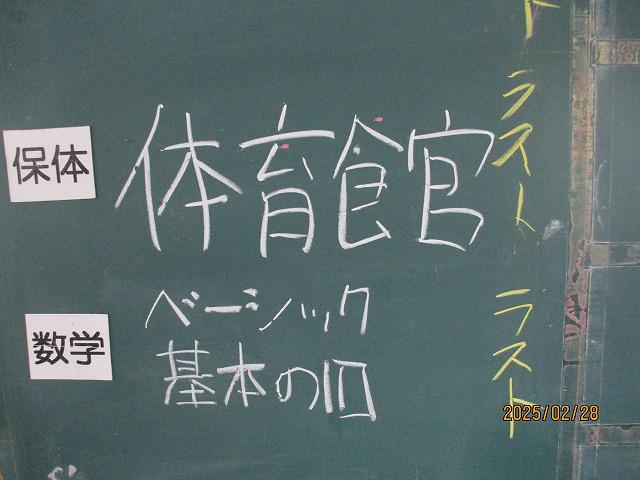 ト
保体 体育館 ラスト
数学 ベーシック ラスト
基本の
2025/02/28